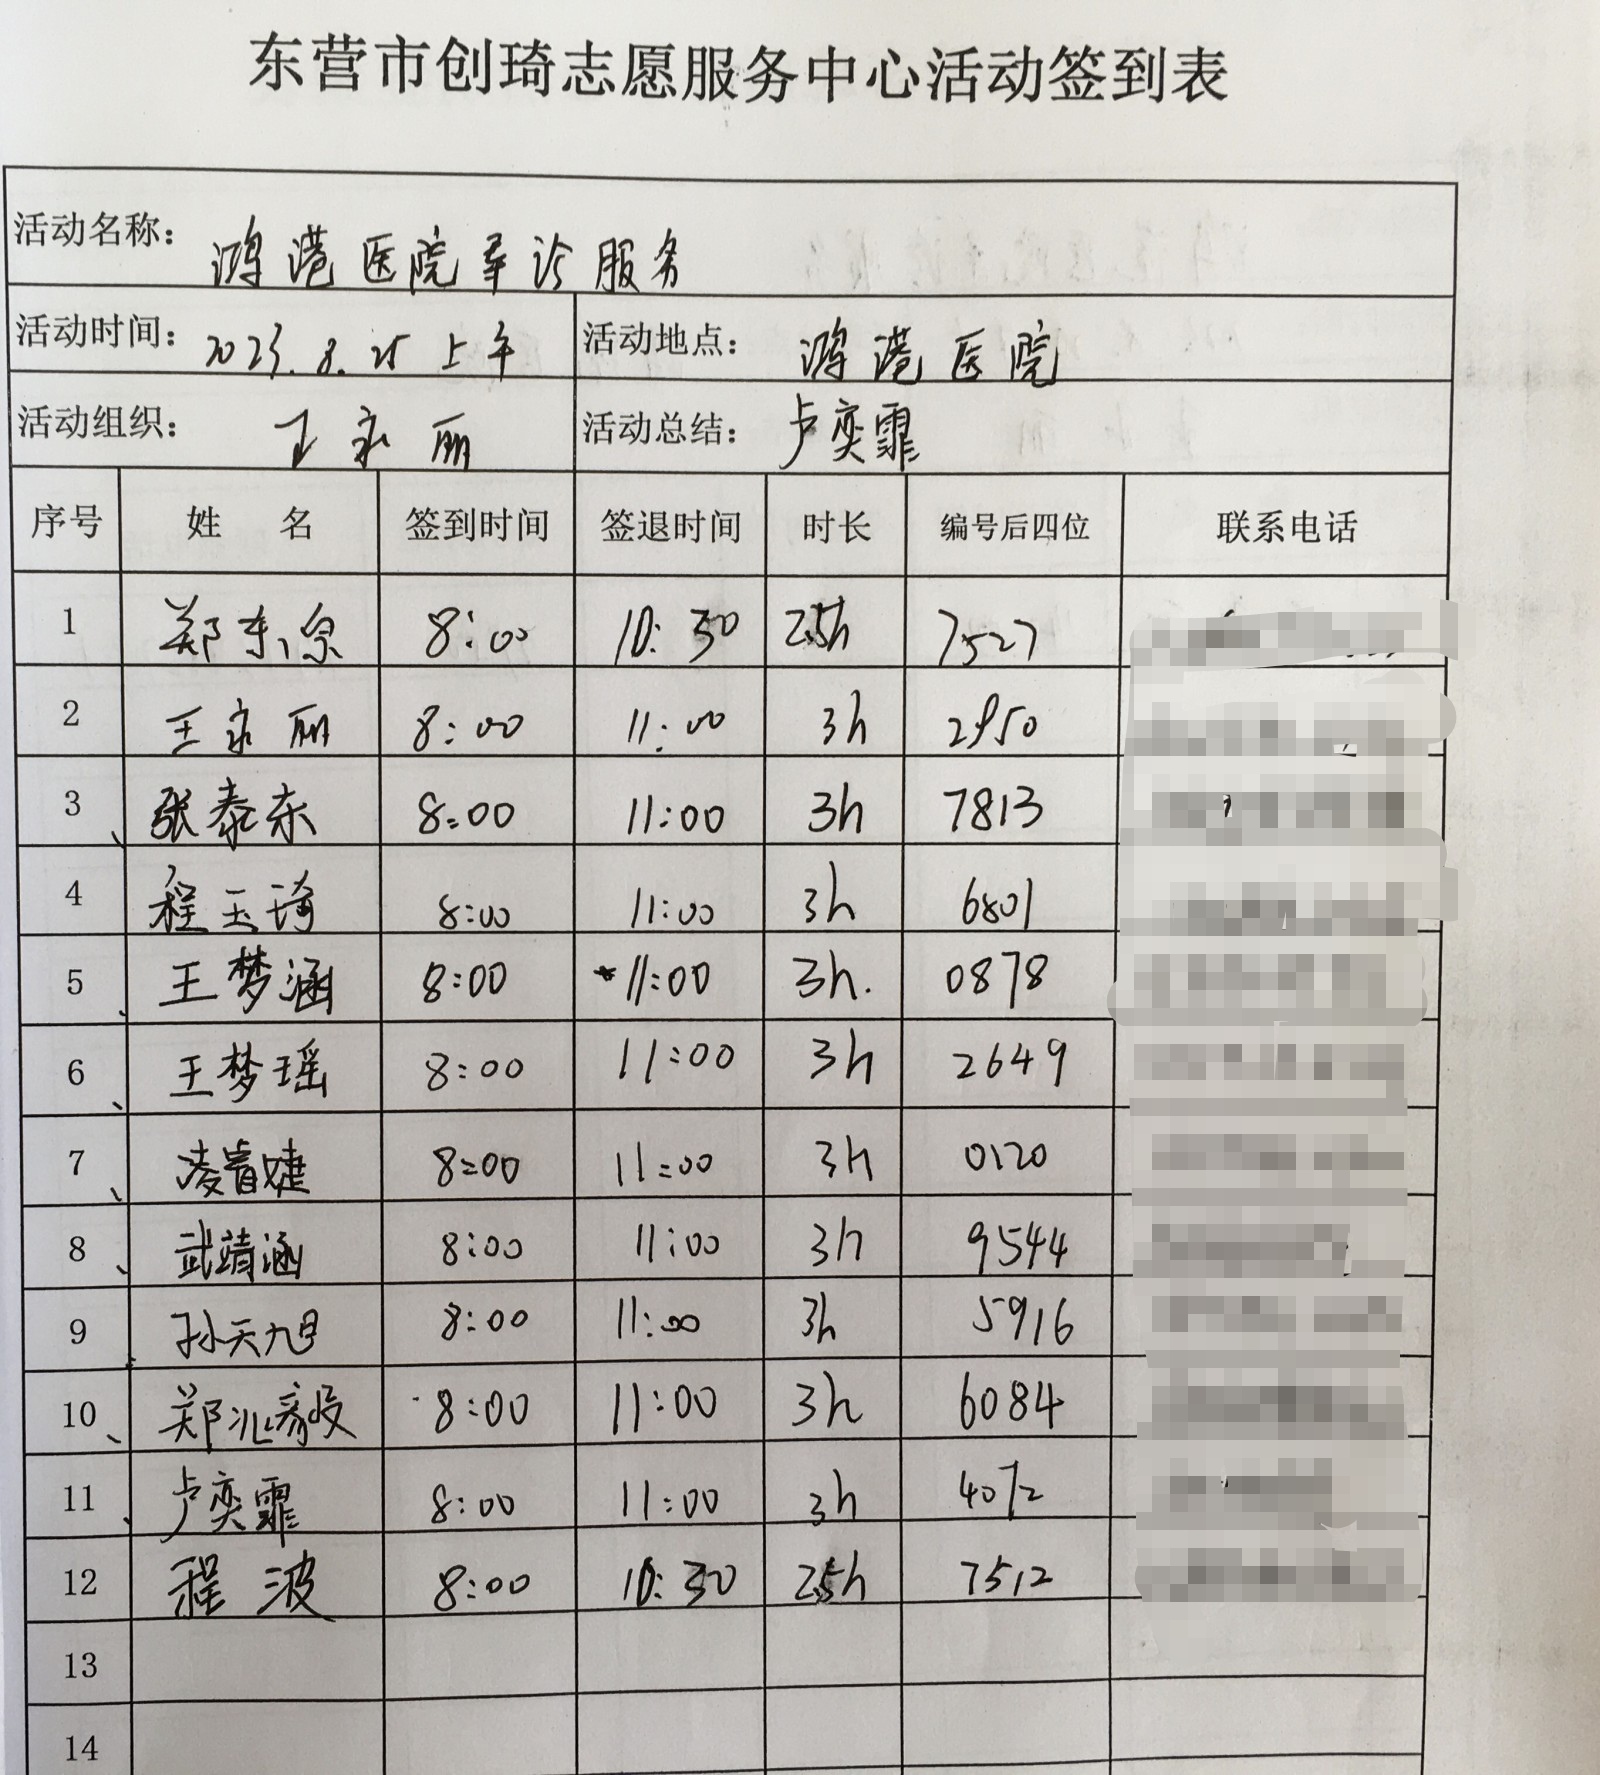 东营市创琦志愿服务中心活动签到表
活动名称: 鸿港医院导诊服务
活动时间: 2023.8.25上午 活动地点: 鸿港医院
活动组织: 王永丽 活动总结: 卢奕霏
序号 姓 名 签到时间 签退时间 时长 编号后四位 联系电话
1 郑东宗 8:00 10:30 2.5h 7527
2 王永丽 8:00 11:00 3h 2950
3 张泰东 8:00 11:00 3h 7813
4 程玉琦 8:00 11:00 3h 6801
5 王梦涵 8:00 11:00 3h. 0878
6 王梦瑶 8:00 11:00 3h 2649
7 凌睿婕 8:00 11:00 3h 0120
8 武靖涵 8:00 11:00 3h 9544
9 孙天旭 8:00 11:00 3h 5916
10 郑兆毅 8:00 11:00 3h 6084
11 卢奕霏 8:00 11:00 3h 4072
12 程波 8:00 10:30 2.5h 7512
13
14